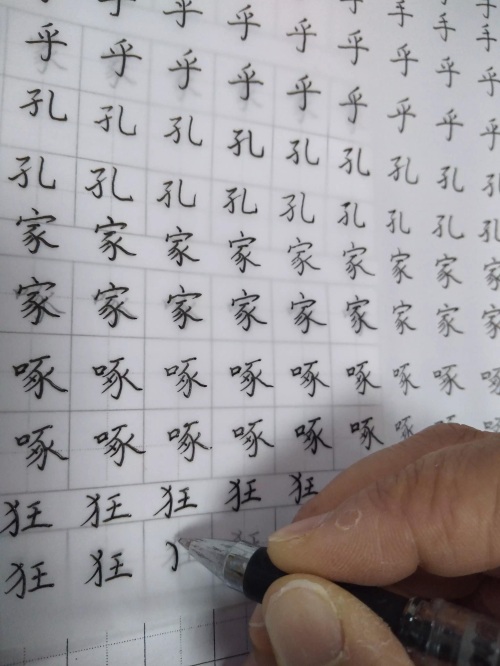 手 手 手
乎 乎 乎 乎 乎 乎
乎 乎 乎 乎 乎 乎 乎 乎 乎
孔 孔 孔 孔 孔 孔 孔 孔 孔
孔 孔 孔 孔 孔 孔 孔 孔 孔
家 家 家 家 家 家 家 家 家
家 家 家 家 家 家 家 家 家
啄 啄 啄 啄 啄 啄 啄 啄 啄
啄 啄 啄 啄 啄 啄 啄
狂 狂 狂 狂 狂
狂 狂